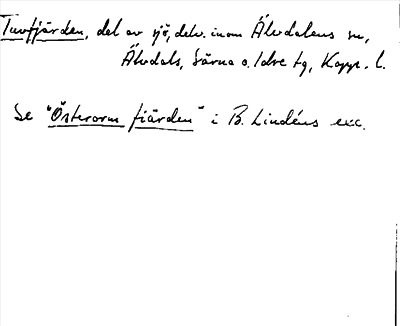 Tuvfjärden, del av sjö, delv. inom Älvdalens sn,
Älvdals, Särna o. Idre tg, Kopp. l.
Se "Österorm fiärden" i B. Lindéns exc.